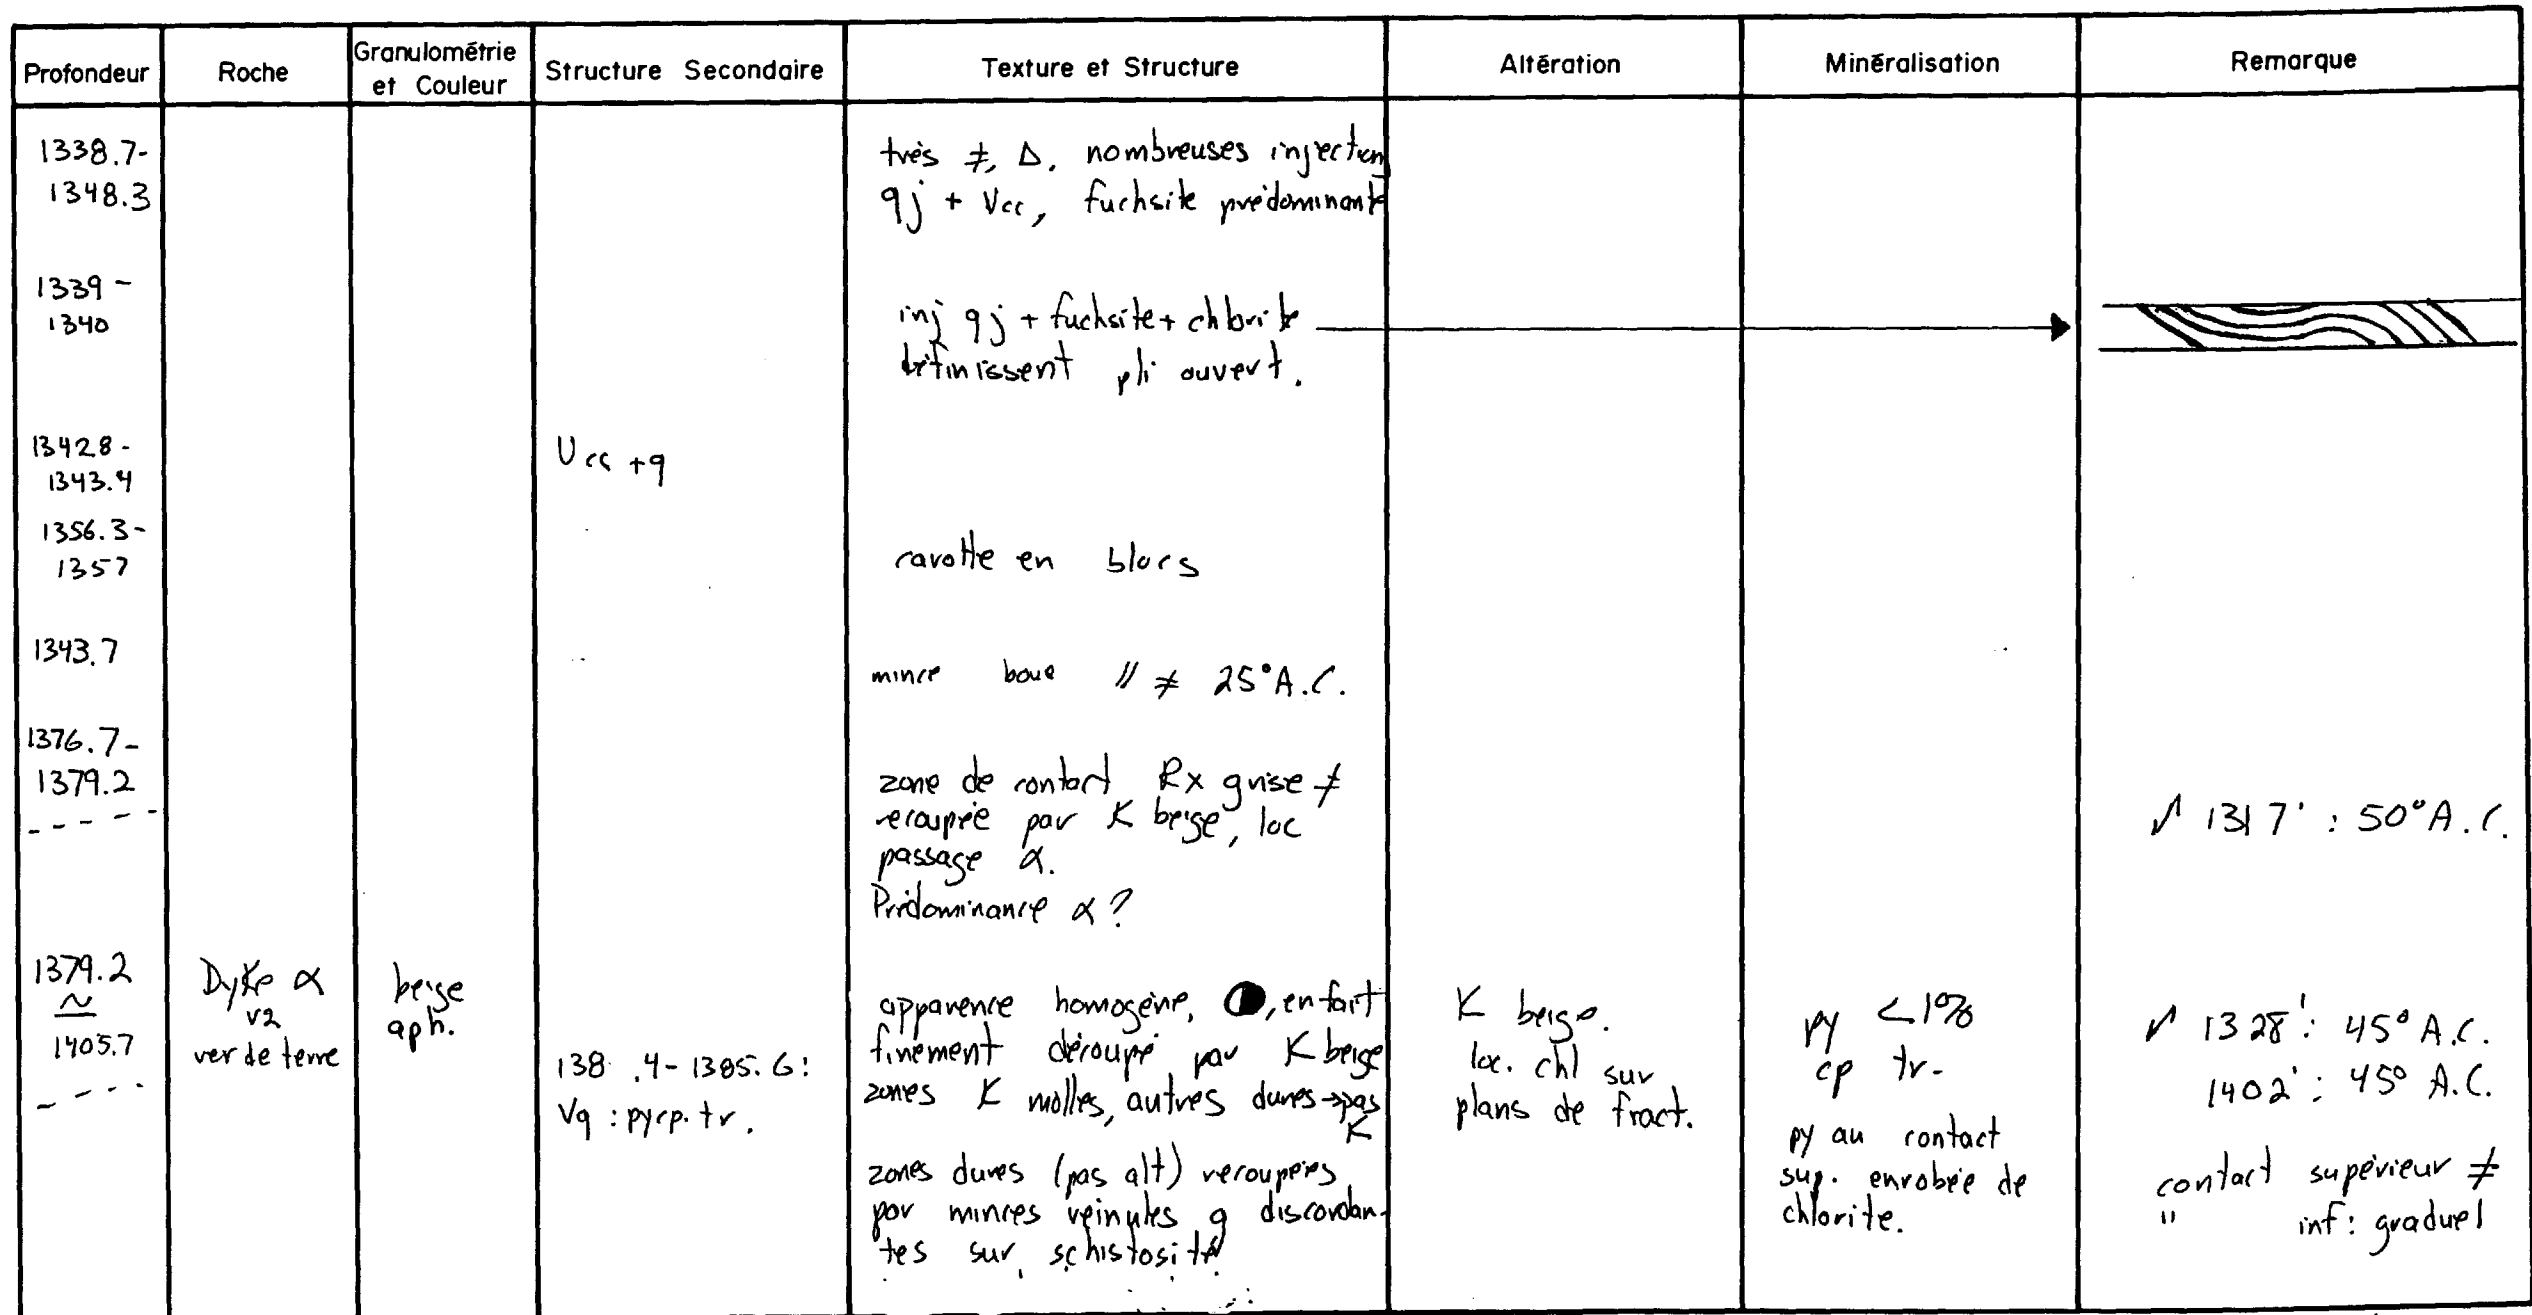 Profondeur
Roche
Granulométrie
et Couleur
Structure Secondaire
Texture et Structure
Altération
Minéralisation
Remarque
1338.7-
1348.3
très ≠, Δ. nombreuses injection
qj + Vcc, fuchsite prédominante
1339 -
1340
inj qj + fuchsite + chlorite
définissent pli ouvert.
1342.8 -
1343.4
Vcc + q
1356.3 -
1357
carotte en blocs
1343.7
mince boue // ≠ 25° A.C.
1376.7 -
1379.2
zone de contact Rx grise ≠
recoupée par K beige, loc
passage α.
Prédominance α ?
1317' : 50° A.C.
1379.2
~
1405.7
Dyke α
v2
ver de terre
beige
aph.
138 .4 - 1385.6 :
Vq : py cp. tr.
apparence homogène, ◑, en fait
finement découpé par K beige
zones K molles, autres dures → pas
K
zones dures (pas alt) recoupées
par minces veinules q discordan-
tes sur schistosité
K beige.
loc. chl sur
plans de fract.
py < 1%
cp tr.
py au contact
sup. enrobée de
chlorite.
1328' : 45° A.C.
1402' : 45° A.C.
contact supérieur ≠
" inf : graduel